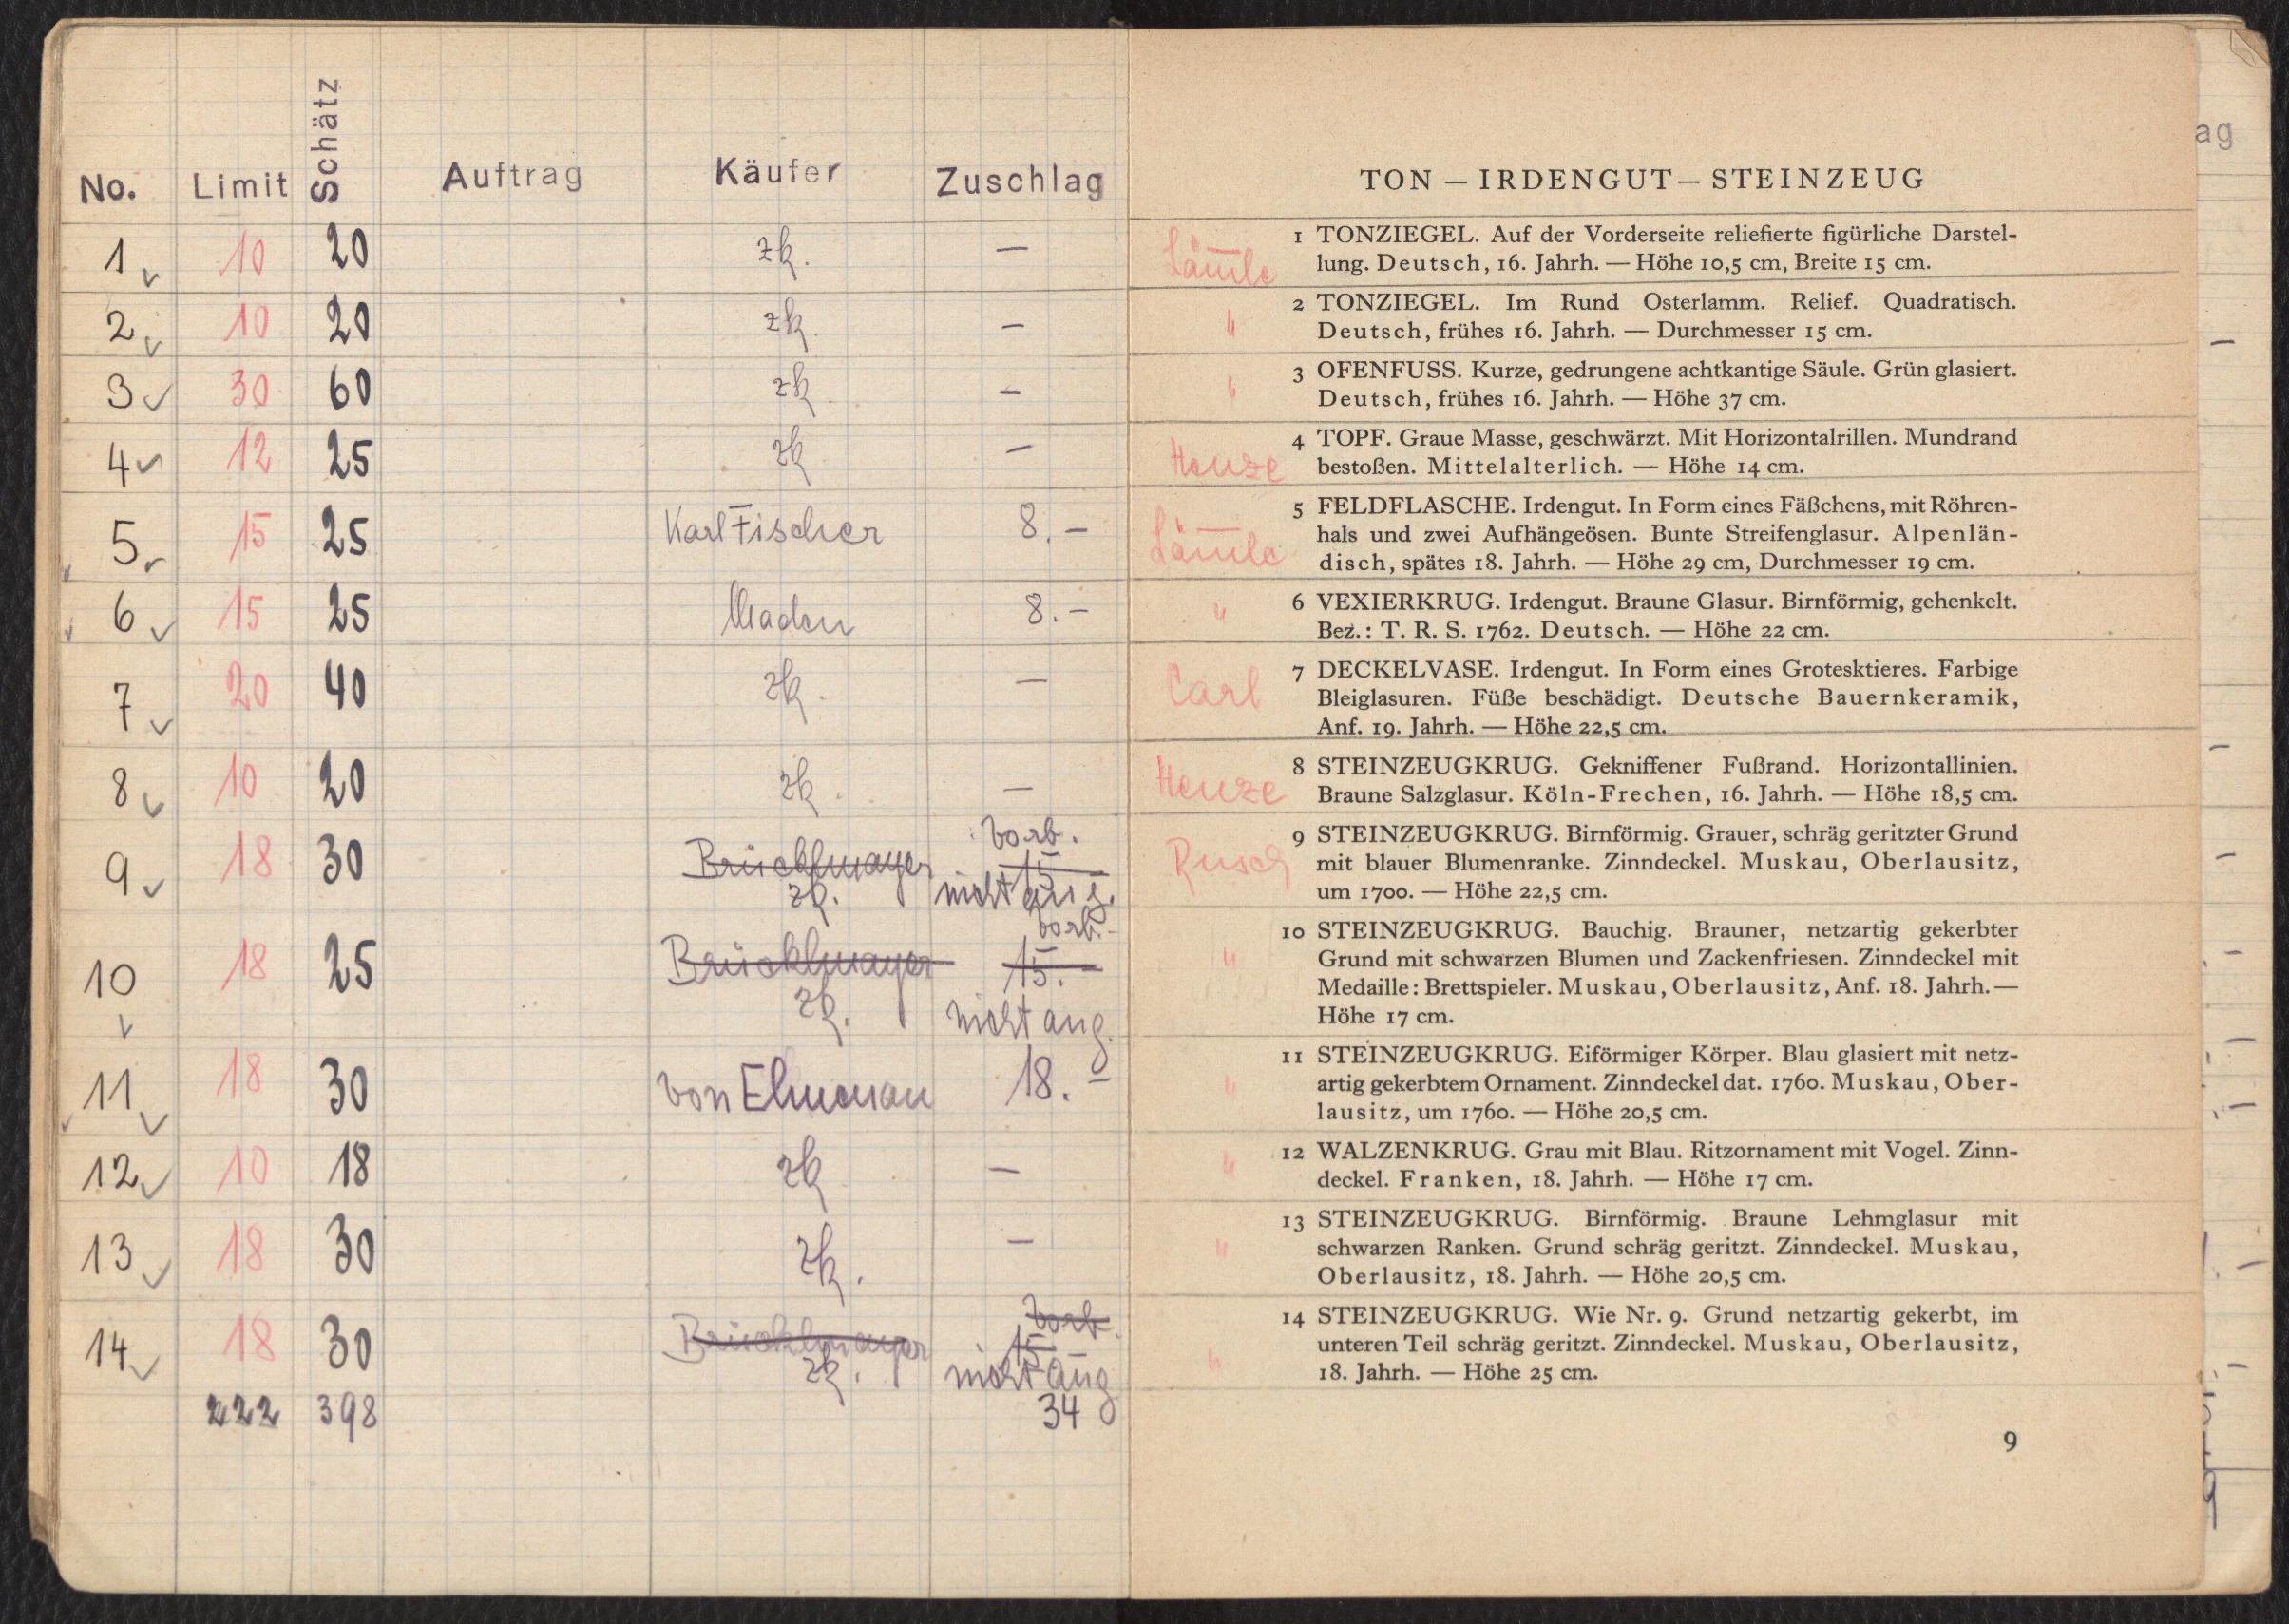 No. Limit Schätz Auftrag Käufer Zuschlag
1 10 20 zk. —
2 10 20 zk. —
3 30 60 zk —
4 12 25 zk —
5 15 25 Karl Fischer 8.—
6 15 25 Maden 8.—
7 20 40 zk. —
8 10 20 zk. —
vorb.
9 18 30 Brücklmayer 15
zk. nicht ang.
vorb.
10 18 25 Brücklmayer 15.—
zk. nicht ang.
11 18 30 von Elmenau 18.—
12 10 18 zk —
13 18 30 zk. —
vorb.
14 18 30 Brücklmayer 15
zk. nicht ang
222 398 34
TON — IRDENGUT — STEINZEUG
Lämle
1 TONZIEGEL. Auf der Vorderseite reliefierte figürliche Darstel-
lung. Deutsch, 16. Jahrh. — Höhe 10,5 cm, Breite 15 cm.
" 2 TONZIEGEL. Im Rund Osterlamm. Relief. Quadratisch.
Deutsch, frühes 16. Jahrh. — Durchmesser 15 cm.
" 3 OFENFUSS. Kurze, gedrungene achtkantige Säule. Grün glasiert.
Deutsch, frühes 16. Jahrh. — Höhe 37 cm.
Henze
4 TOPF. Graue Masse, geschwärzt. Mit Horizontalrillen. Mundrand
bestoßen. Mittelalterlich. — Höhe 14 cm.
Lämle
5 FELDFLASCHE. Irdengut. In Form eines Fäßchens, mit Röhren-
hals und zwei Aufhängeösen. Bunte Streifenglasur. Alpenlän-
disch, spätes 18. Jahrh. — Höhe 29 cm, Durchmesser 19 cm.
" 6 VEXIERKRUG. Irdengut. Braune Glasur. Birnförmig, gehenkelt.
Bez.: T. R. S. 1762. Deutsch. — Höhe 22 cm.
Carl
7 DECKELVASE. Irdengut. In Form eines Grotesktieres. Farbige
Bleiglasuren. Füße beschädigt. Deutsche Bauernkeramik,
Anf. 19. Jahrh. — Höhe 22,5 cm.
Henze
8 STEINZEUGKRUG. Gekniffener Fußrand. Horizontallinien.
Braune Salzglasur. Köln-Frechen, 16. Jahrh. — Höhe 18,5 cm.
Rusch
9 STEINZEUGKRUG. Birnförmig. Grauer, schräg geritzter Grund
mit blauer Blumenranke. Zinndeckel. Muskau, Oberlausitz,
um 1700. — Höhe 22,5 cm.
" 10 STEINZEUGKRUG. Bauchig. Brauner, netzartig gekerbter
Grund mit schwarzen Blumen und Zackenfriesen. Zinndeckel mit
Medaille: Brettspieler. Muskau, Oberlausitz, Anf. 18. Jahrh. —
Höhe 17 cm.
" 11 STEINZEUGKRUG. Eiförmiger Körper. Blau glasiert mit netz-
artig gekerbtem Ornament. Zinndeckel dat. 1760. Muskau, Ober-
lausitz, um 1760. — Höhe 20,5 cm.
" 12 WALZENKRUG. Grau mit Blau. Ritzornament mit Vogel. Zinn-
deckel. Franken, 18. Jahrh. — Höhe 17 cm.
" 13 STEINZEUGKRUG. Birnförmig. Braune Lehmglasur mit
schwarzen Ranken. Grund schräg geritzt. Zinndeckel. Muskau,
Oberlausitz, 18. Jahrh. — Höhe 20,5 cm.
" 14 STEINZEUGKRUG. Wie Nr. 9. Grund netzartig gekerbt, im
unteren Teil schräg geritzt. Zinndeckel. Muskau, Oberlausitz,
18. Jahrh. — Höhe 25 cm.
9
ag